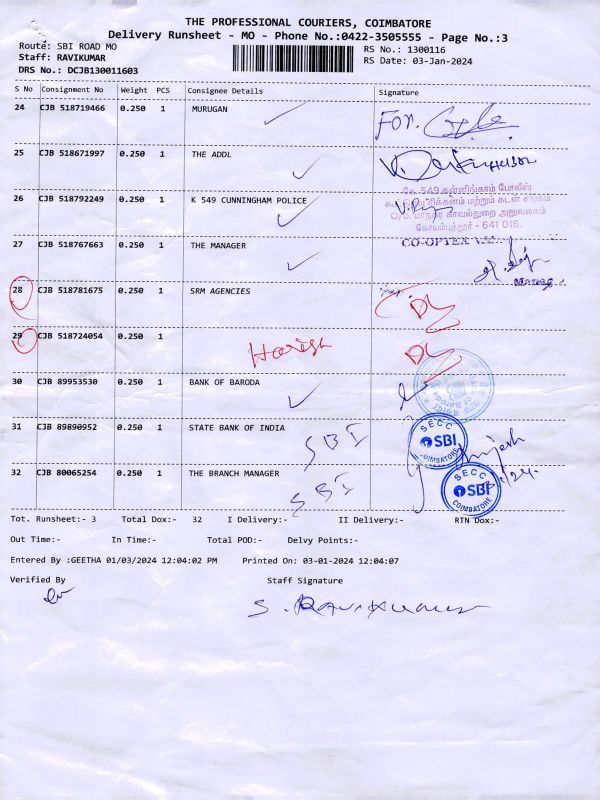 THE PROFESSIONAL COURIERS, COIMBATORE
Delivery Runsheet - MO - Phone No.:0422-3505555 - Page No.:3
Route: SBI ROAD MO
RS No.: 1300116
Staff: RAVIKUMAR
RS Date: 03-Jan-2024
DRS No.: DCJB130011603
S No Consignment No Weight PCS Consignee Details Signature
24 CJB 518719466 0.250 1 MURUGAN FOR.
25 CJB 518671997 0.250 1 THE ADDL
26 CJB 518792249 0.250 1 K 549 CUNNINGHAM POLICE
கே. 549 கன்னிங்காம் போலீஸ்
சிக்கனம் மற்றும் கடன் சங்கம்
மாநகர காவல்துறை அலுவலகம்
கோயம்புத்தூர் - 641 018.
27 CJB 518767663 0.250 1 THE MANAGER
CO-OPTEX
28 CJB 518781675 0.250 1 SRM AGENCIES DL
29 CJB 518724054 0.250 1 Haresh DL
30 CJB 89953530 0.250 1 BANK OF BARODA
31 CJB 89890952 0.250 1 STATE BANK OF INDIA SBI
SECC SBI COIMBATORE
32 CJB 80065254 0.250 1 THE BRANCH MANAGER SBI
SECC SBI COIMBATORE
Tot. Runsheet:- 3 Total Dox:- 32 I Delivery:- II Delivery:- RTN Dox:-
Out Time:- In Time:- Total POD:- Delvy Points:-
Entered By :GEETHA 01/03/2024 12:04:02 PM Printed On: 03-01-2024 12:04:07
Verified By Staff Signature
S. Ravikumar